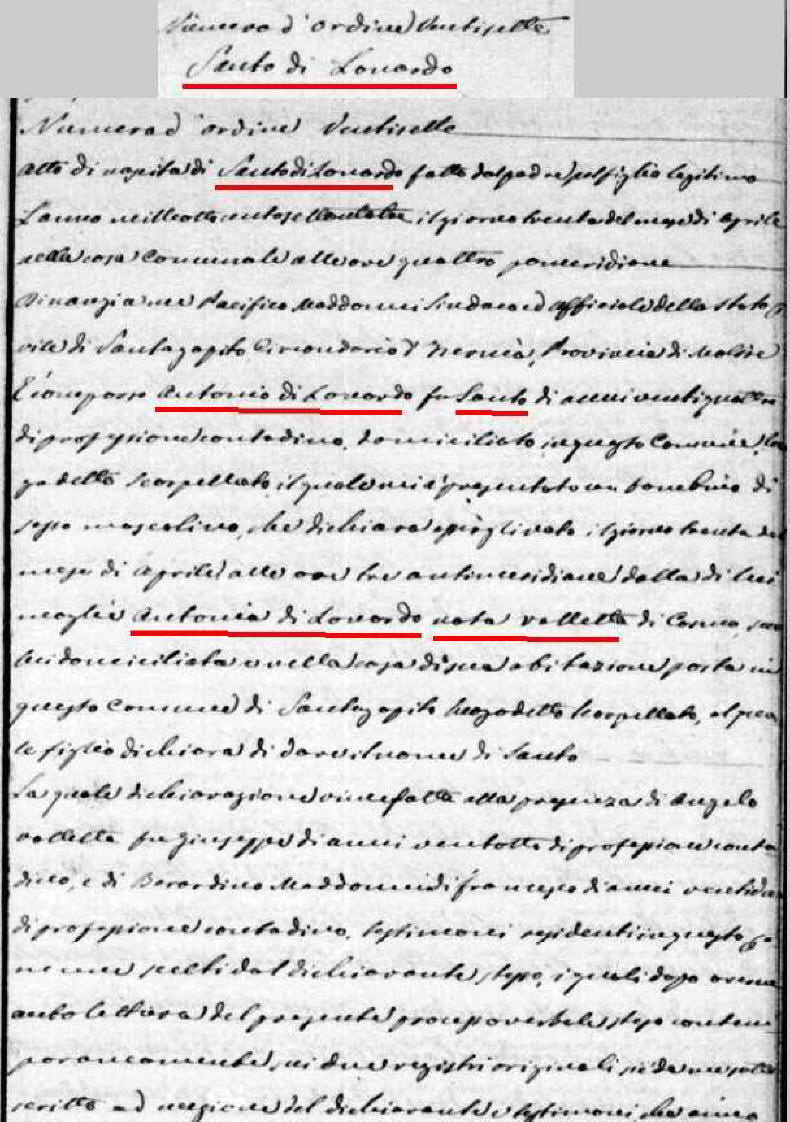 Numero d'ordine Ventisette
Santo di Lonardo
Numero d'ordine Ventisette
Atto di nascita di Santo di Lonardo fatto dal padre pel figlio legittimo
L'anno milleotto il giorno trenta del mese di Aprile
nella casa Comunale alle ore quattro pomeridiane
Dinanzi a me Pacifico Maddonni Sindaco ed affiziale dello Stato
vile di Santagapito Circondario d'Isernia, Provincia di Molise
È comparso Antonio di Lonardo fu Santo di anni ventiquattro
di professione contadino, domiciliato in questo Comune, luo
go detto Scarpellato, il quale mi à presentato un bambino di
sesso mascolino, che dichiara essergli nato il giorno trenta del
mese di Aprile alle ore tre antimeridiane dalla di lui
moglie Antonia di Lonardo nata valletta di Cosmo, seco
lui domiciliata e nella casa di sua abitazione posta in
questo Comune di Santagapito luogo detto Scarpellato, al qua
le figlio dichiara di dare il nome di Santo
La quale dichiarazione vien fatta alla presenza di Angelo
valletta fu Giuseppe di anni ventotto di professione conta
dino, e di Berardino Maddonni di Francesco di anni
di professione contadino, testimoni residenti in questo Co
mune scelti dal dichiarante stesso, i quali dopo avere
avuto lettura del presente processo verbale, steso contem
poraneamente sui due registri originali si è da me sotto
scritto ad eccezione del dichiarante e testimoni che anno